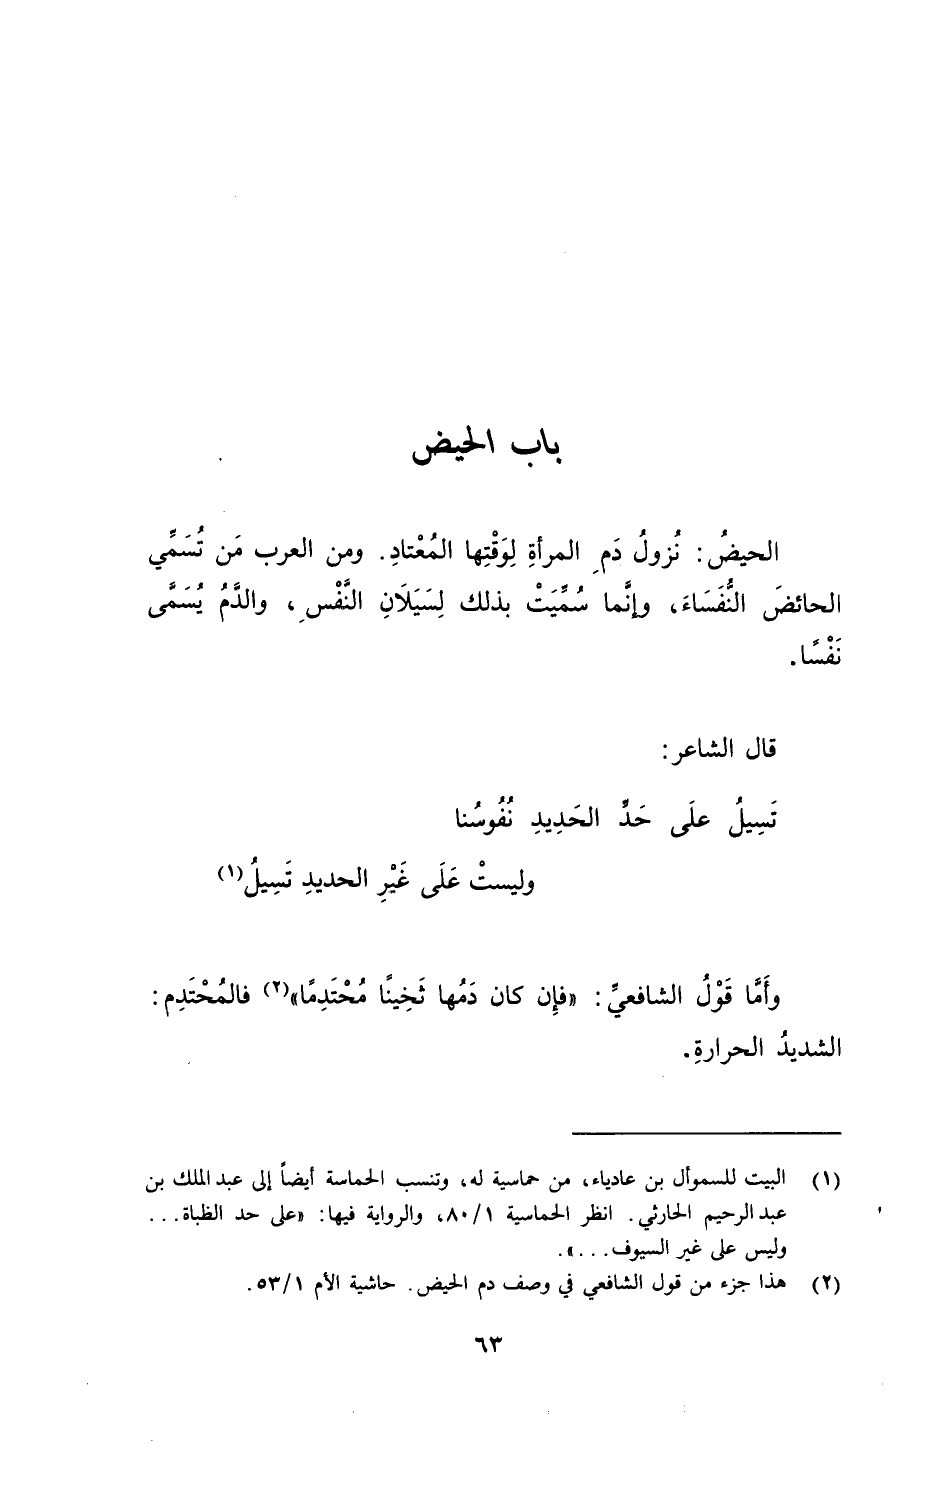 باب الحيض
الحيضُ: نُزولُ دَمِ المرأةِ لِوَقْتِها المُعْتادِ. ومن العرب مَن تُسَمِّي
الحائضَ النُّفَسَاءَ، وإنَّما سُمِّيَتْ بذلك لِسَيَلَانِ النَّفْسِ، والدَّمُ يُسَمَّى
نَفْسًا.
قال الشاعر:
تَسِيلُ علَى حَدِّ الحَدِيدِ نُفُوسُنا
وليستْ عَلَى غَيْرِ الحديدِ تَسِيلُ(١)
وأَمَّا قَوْلُ الشافعيِّ: «فإن كان دَمُها ثَخِينًا مُحْتَدِمًا»(٢) فالمُحْتَدِم:
الشديدُ الحرارةِ.
(١) البيت للسموأل بن عادياء، من حماسية له، وتنسب الحماسة أيضاً إلى عبد الملك بن
عبد الرحيم الحارثي. انظر الحماسية ٨٠/١، والرواية فيها: «على حد الظباة...
وليس على غير السيوف...».
(٢) هذا جزء من قول الشافعي في وصف دم الحيض. حاشية الأم ٥٣/١.
٦٣